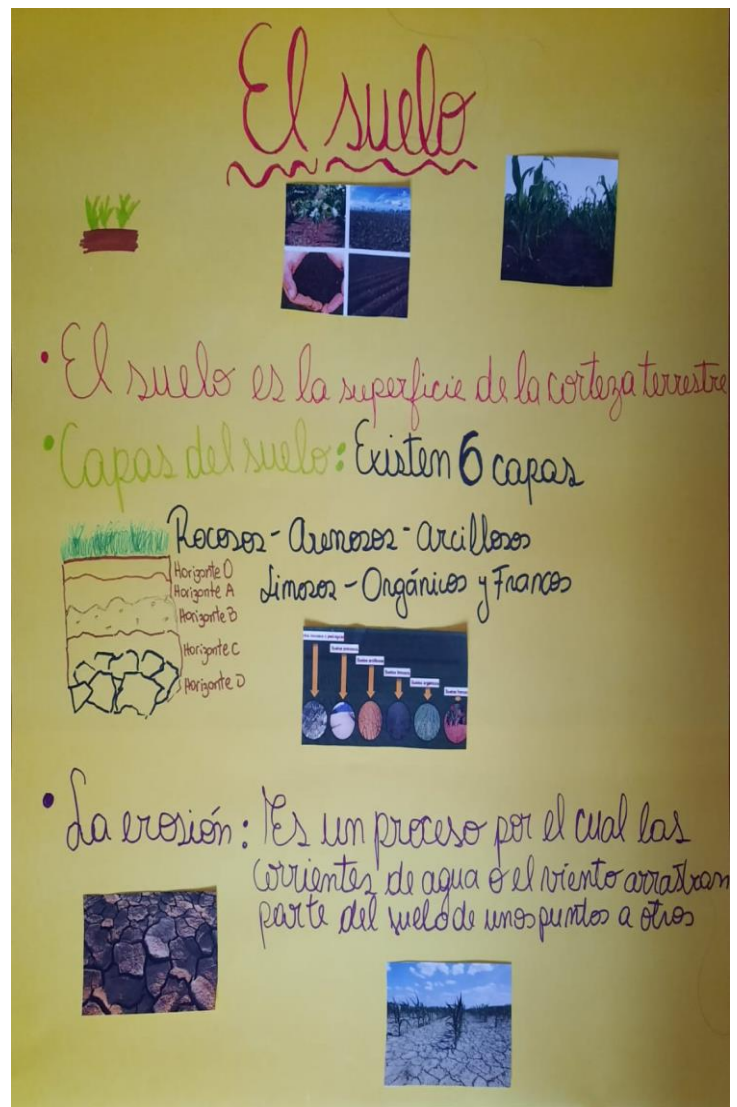 El suelo
• El suelo es la superficie de la corteza terrestre
• Capas del suelo: Existen 6 capas
Rocosos - Arenosos - arcillosos
Limosos - Orgánicos y Francos
Horizonte O
Horizonte A
Horizonte B
Horizonte C
Horizonte D
Suelos arenosos
Suelos arcillosos
Suelos limosos
• La erosión: Es un proceso por el cual las
corrientes de agua o el viento arrastran
parte del suelo de unos puntos a otros